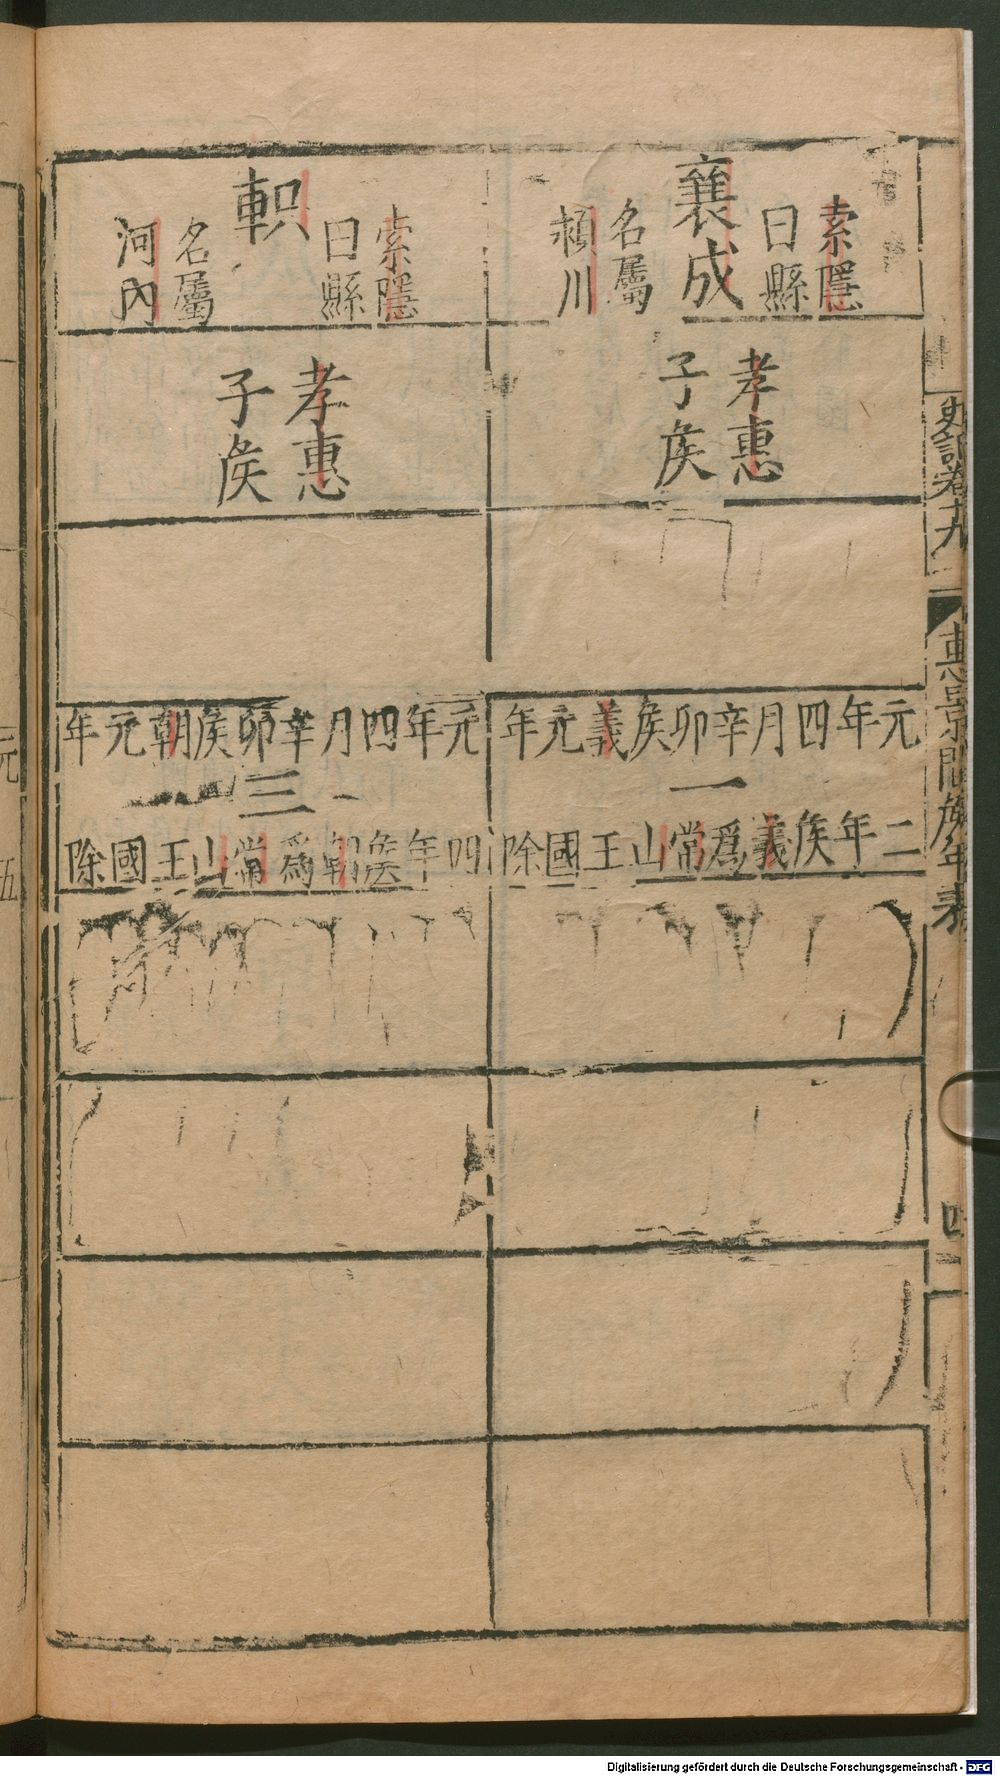 襄成
索隱
曰縣
名屬
潁川
孝惠
子侯
元年四月辛卯侯義元年
一
二年侯義爲常山王國除
軹
索隱
曰縣
名屬
河內
孝惠
子侯
元年四月辛卯侯朝元年
三
四年侯朝爲常山王國除
史記卷十九
惠景間侯年表
四
元
五
Digitalisierung gefördert durch die Deutsche Forschungsgemeinschaft - DFG